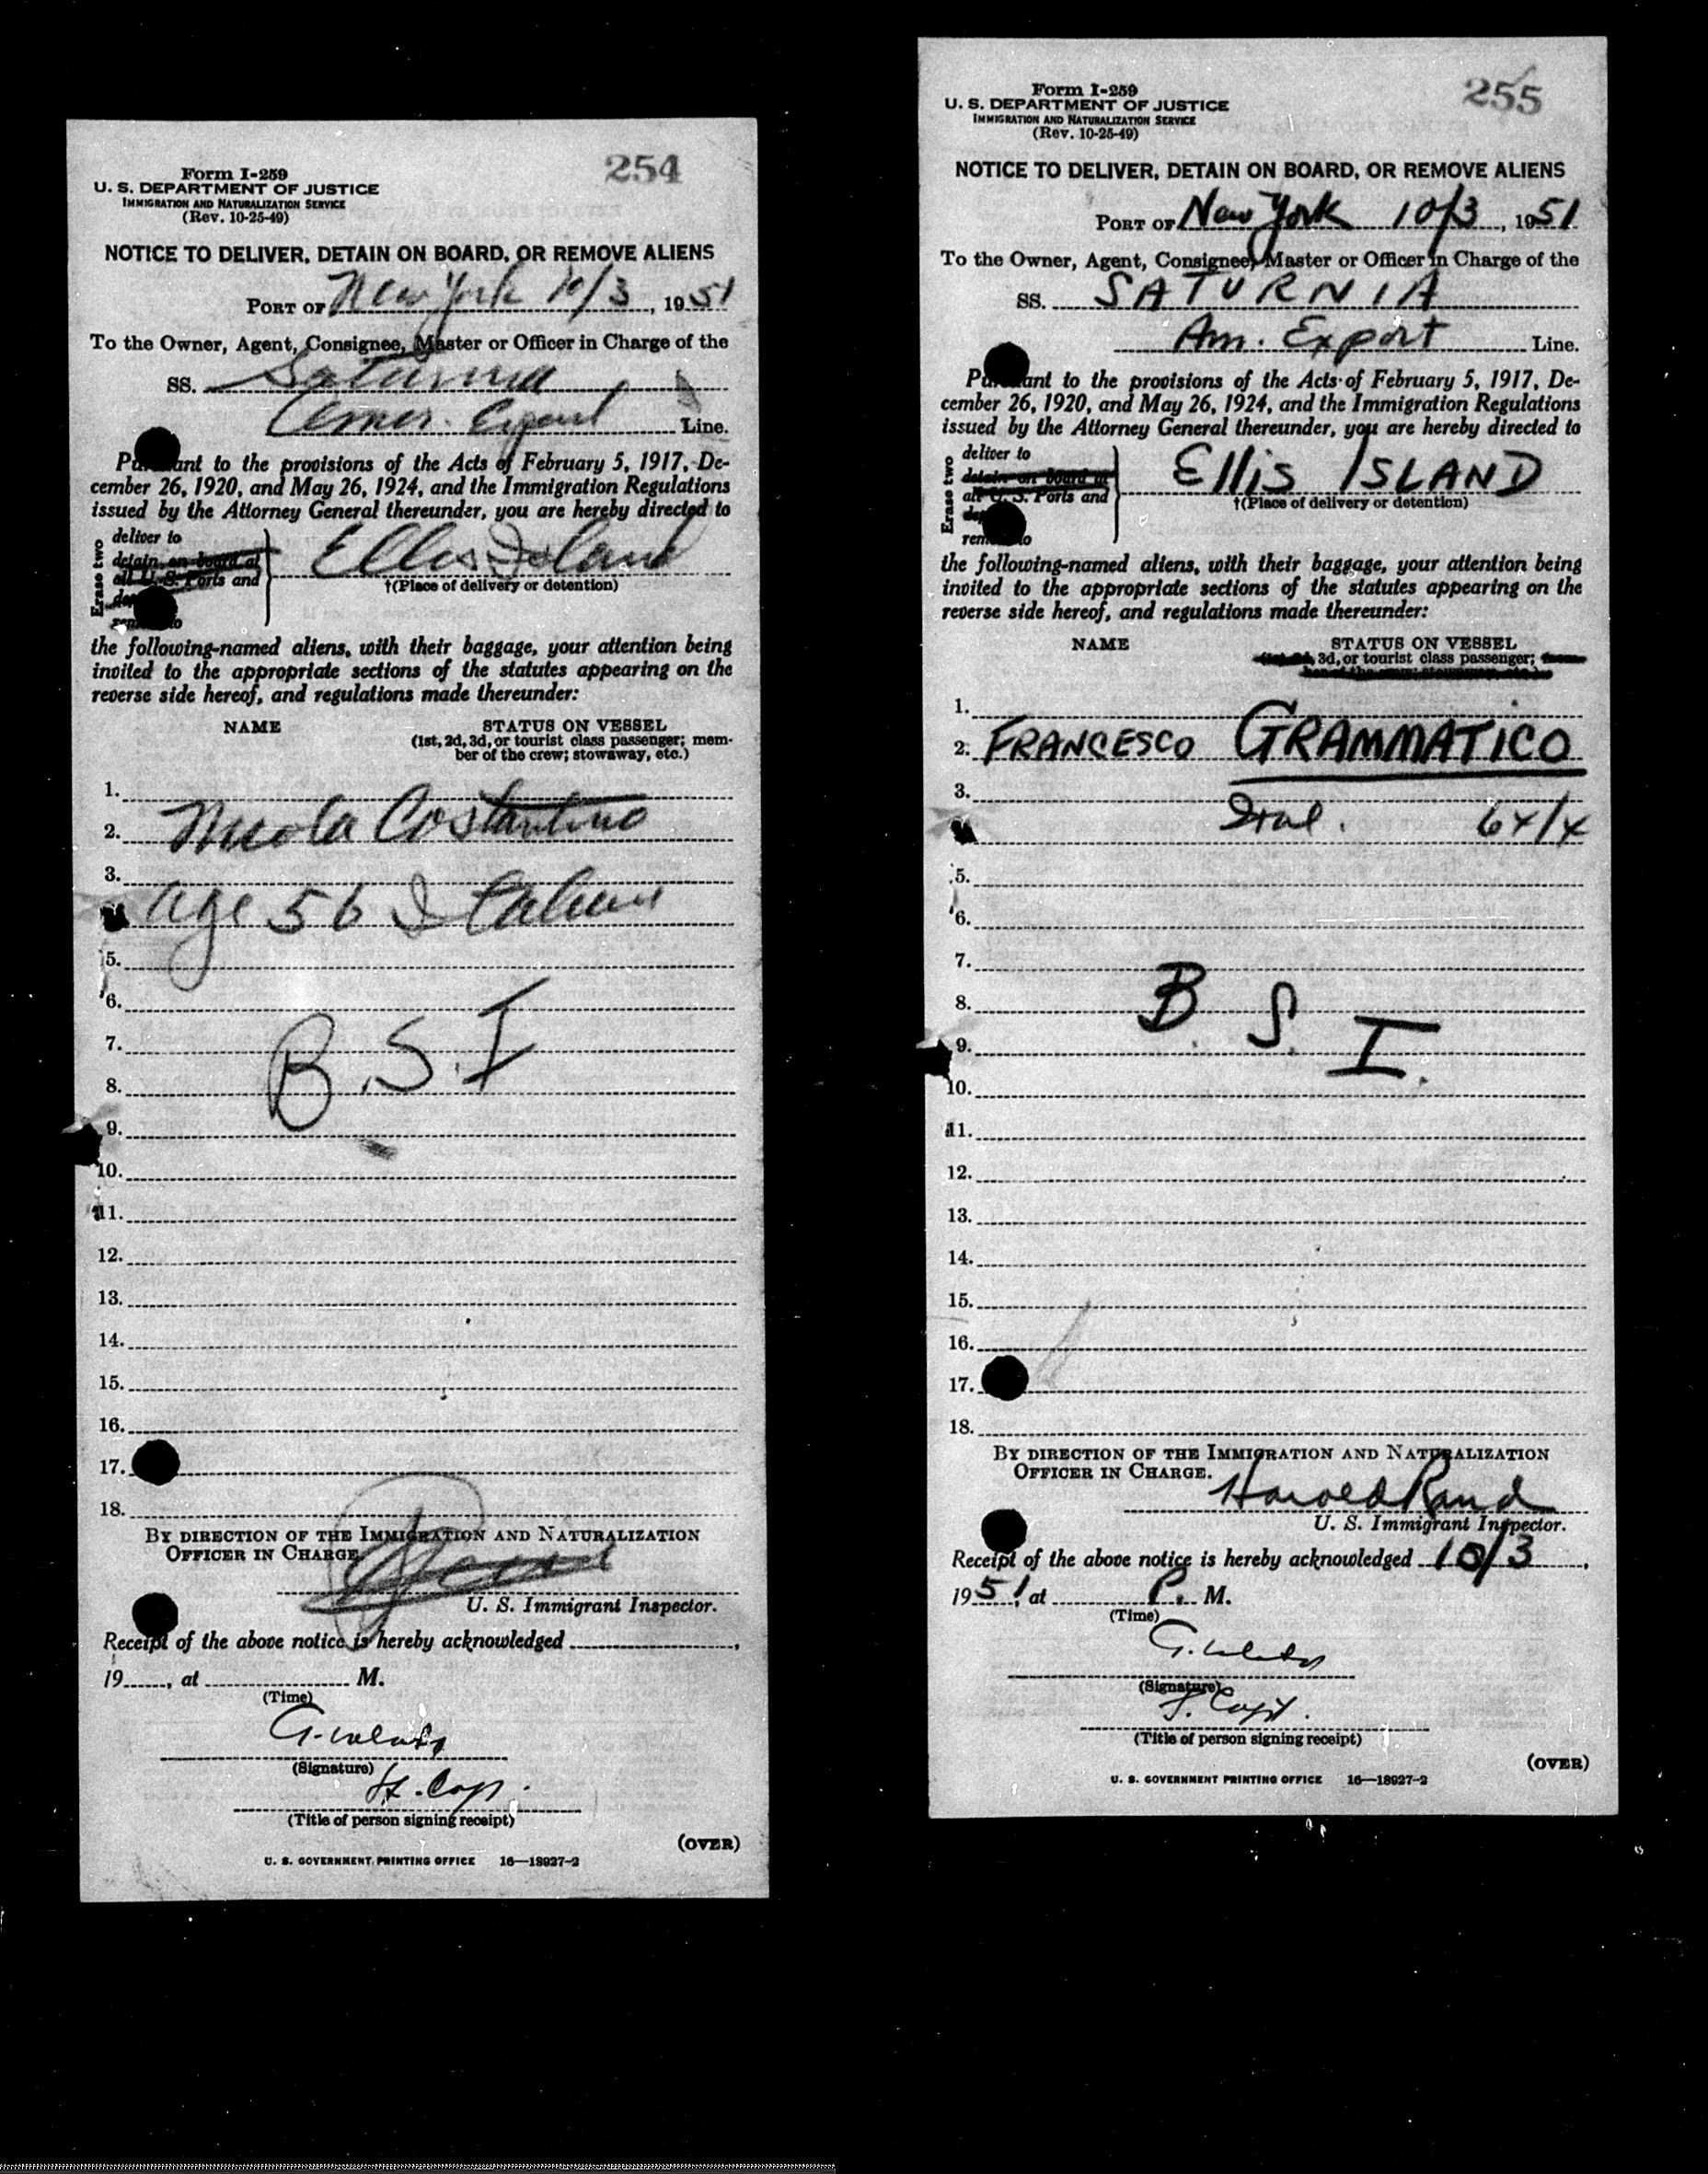 254
Form I-259
U. S. DEPARTMENT OF JUSTICE
IMMIGRATION AND NATURALIZATION SERVICE
(Rev. 10-25-49)
NOTICE TO DELIVER, DETAIN ON BOARD, OR REMOVE ALIENS
PORT OF New York 10/3, 1951
To the Owner, Agent, Consignee, Master or Officer in Charge of the
SS. Saturnia
Amer. Export Line.
Pursuant to the provisions of the Acts of February 5, 1917, De-
cember 26, 1920, and May 26, 1924, and the Immigration Regulations
issued by the Attorney General thereunder, you are hereby directed to
Erase two
deliver to
detain on board at
all U. S. Ports and
remove to
Ellis Island
†(Place of delivery or detention)
the following-named aliens, with their baggage, your attention being
invited to the appropriate sections of the statutes appearing on the
reverse side hereof, and regulations made thereunder:
NAME STATUS ON VESSEL
(1st, 2d, 3d, or tourist class passenger; mem-
ber of the crew; stowaway, etc.)
1.
2. Nicola Costantino
3.
age 56 Italian
5.
6.
7. B.S.I
8.
9.
10.
11.
12.
13.
14.
15.
16.
17.
18.
BY DIRECTION OF THE IMMIGRATION AND NATURALIZATION
OFFICER IN CHARGE.
U. S. Immigrant Inspector.
Receipt of the above notice is hereby acknowledged
19......, at M.
(Time)
(Signature)
(Title of person signing receipt)
(OVER)
U. S. GOVERNMENT PRINTING OFFICE 16—18927-2
255
Form I-259
U. S. DEPARTMENT OF JUSTICE
IMMIGRATION AND NATURALIZATION SERVICE
(Rev. 10-25-49)
NOTICE TO DELIVER, DETAIN ON BOARD, OR REMOVE ALIENS
PORT OF New York 10/3, 1951
To the Owner, Agent, Consignee, Master or Officer in Charge of the
SS. SATURNIA
Am. Export Line.
Pursuant to the provisions of the Acts of February 5, 1917, De-
cember 26, 1920, and May 26, 1924, and the Immigration Regulations
issued by the Attorney General thereunder, you are hereby directed to
Erase two
deliver to
detain on board at
all U. S. Ports and
remove to
ELLIS ISLAND
†(Place of delivery or detention)
the following-named aliens, with their baggage, your attention being
invited to the appropriate sections of the statutes appearing on the
reverse side hereof, and regulations made thereunder:
NAME STATUS ON VESSEL
3d, or tourist class passenger;
1.
2. FRANCESCO GRAMMATICO
3.
Ital.
5.
6.
7.
8. B. S. I.
9.
10.
11.
12.
13.
14.
15.
16.
17.
18.
BY DIRECTION OF THE IMMIGRATION AND NATURALIZATION
OFFICER IN CHARGE.
Harold Rand
U. S. Immigrant Inspector.
Receipt of the above notice is hereby acknowledged 10/3,
1951, at P. M.
(Time)
(Signature)
(Title of person signing receipt)
(OVER)
U. S. GOVERNMENT PRINTING OFFICE 16—18927-2